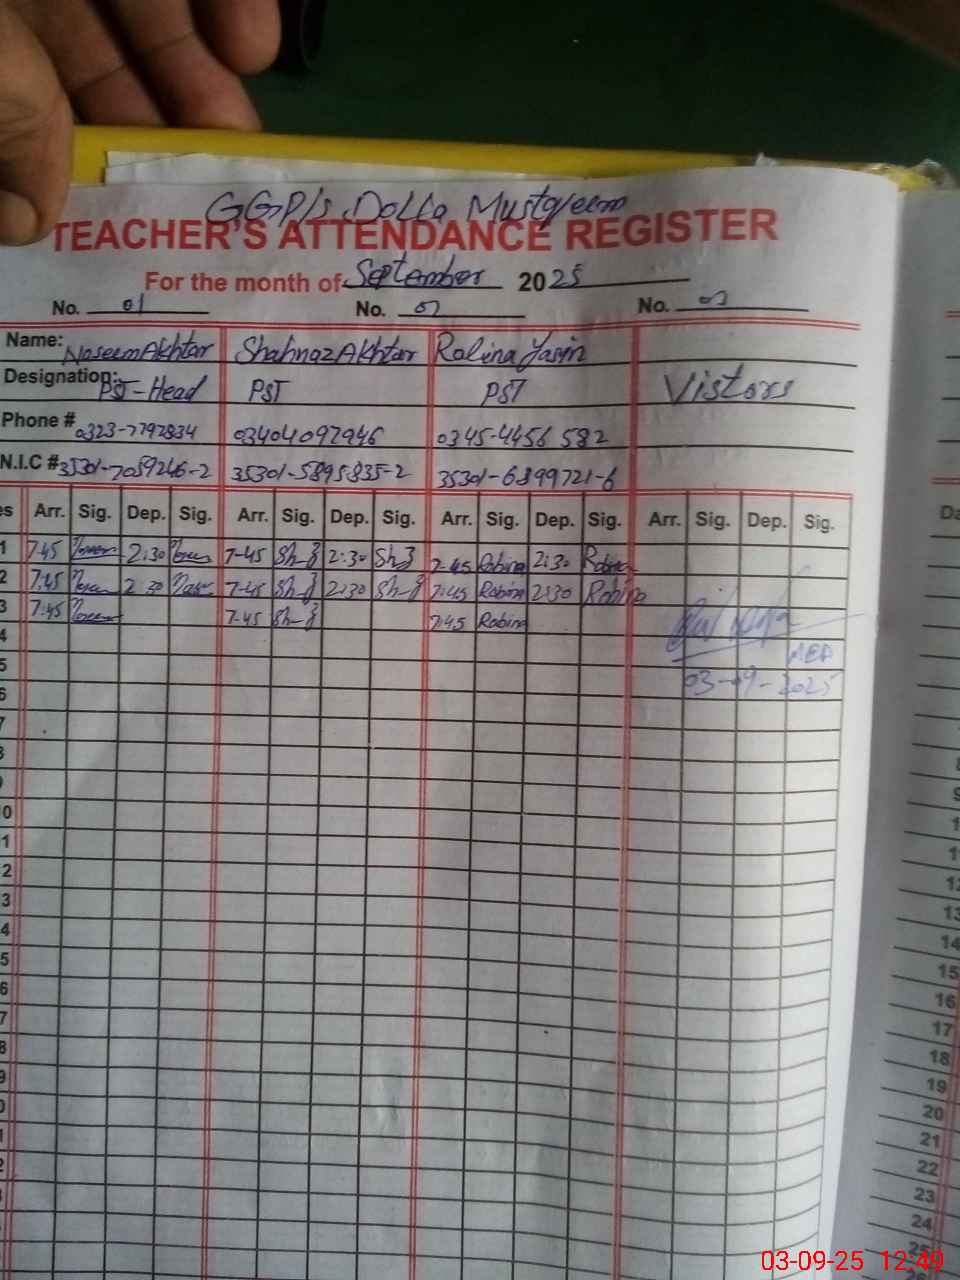 GGP/s Dolla Mustqeem
TEACHER'S ATTENDANCE REGISTER
For the month of September 2025
No. 01 No. 02 No. 03
Name: Naseem Akhtar Shahnaz Akhtar Robina Yasin
Designation: PST-Head PST PST Vistors
Phone # 0323-7797834 03404097946 0345-4456582
N.I.C # 35301-7059246-2 35301-5895835-2 35301-6899721-6
es Arr. Sig. Dep. Sig. Arr. Sig. Dep. Sig. Arr. Sig. Dep. Sig. Arr. Sig. Dep. Sig.
1 7:45 2:30 7-45 2:30 7-45 Robina 2:30 Robina
2 7:45 2:30 7-45 2:30 7:45 Robina 2:30 Robina
3 7:45 7-45 7:45 Robina
4 MEA
5 03-09-2025
6
7
8
9
0
1
2
3
4
5
6
7
8
9
0
1
2
3
Da
9
1
1
12
13
14
15
16
17
18
19
20
21
22
23
24
25
03-09-25 12:49